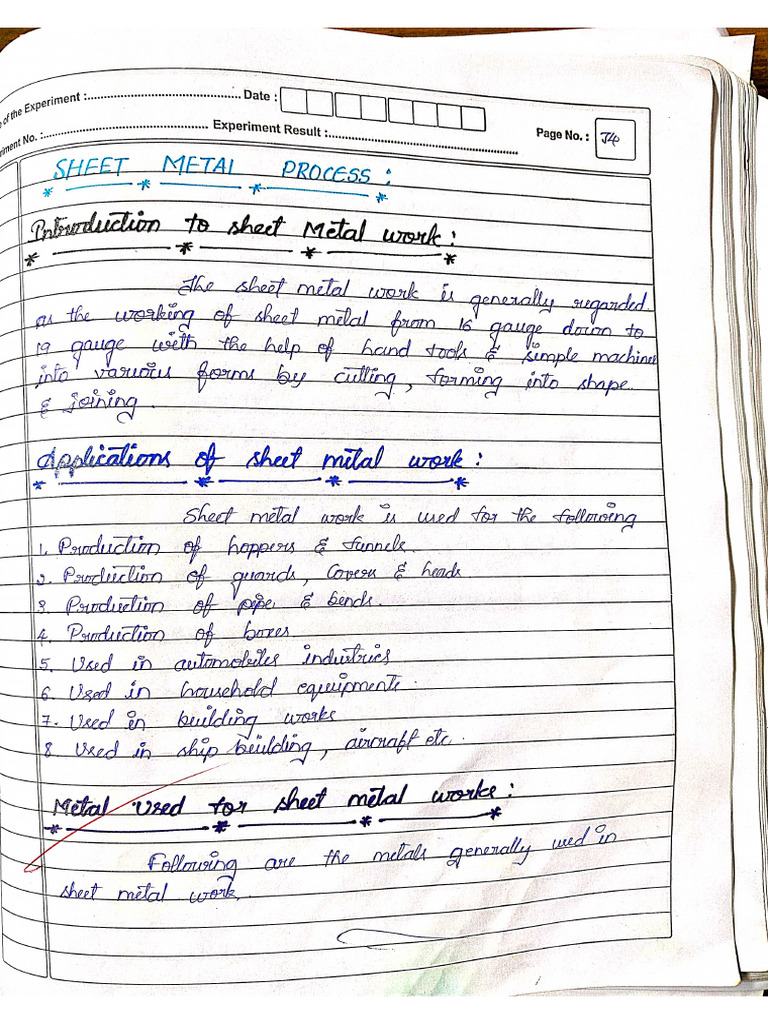 e of the Experiment :........................................ Date :
riment No. :........................................... Experiment Result :.................................................... Page No. :
SHEET METAL PROCESS :
Introduction to sheet Metal work :
The sheet metal work is generally regarded
as the working of sheet metal from 16 gauge down to
19 gauge with the help of hand tools & simple machines
into various forms by cutting, forming into shape
& joining.
Applications of sheet metal work :
Sheet metal work is used for the following
1. Production of hoppers & funnels.
2. Production of guards, covers & heads
3. Production of pipe & bends.
4. Production of boxes.
5. Used in automobiles industries
6. Used in household equipments.
7. Used in building works
8 Used in ship building, aircraft etc.
Metal used for sheet metal works :
Following are the metals generally used in
sheet metal work.